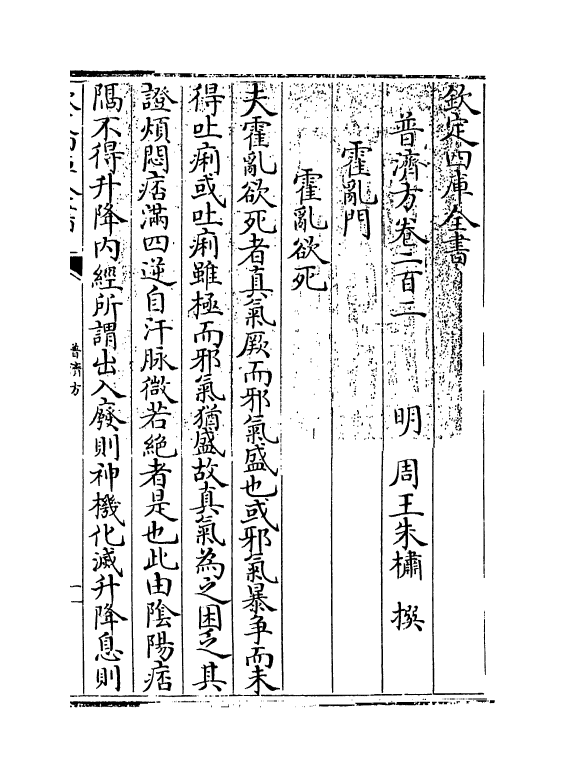 欽定四庫全書
普濟方卷二百二 明 周王朱橚 撰
霍亂門
霍亂欲死
夫霍亂欲死者真氣厥而邪氣盛也或邪氣暴争而未
得吐痢或吐痢雖極而邪氣猶盛故真氣為之困乏其
證煩悶痞滿四逆自汗脉微若絶者是也此由陰陽痞
隔不得升降内經所謂出入廢則神機化滅升降息則
普濟方
一